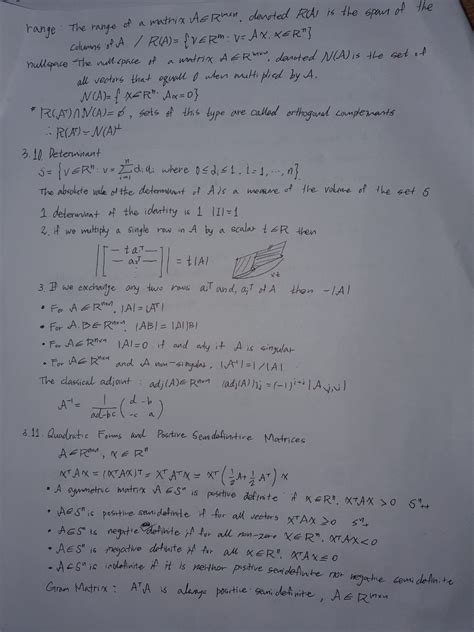 range The range of a matrix A∈R^mxn, denoted R(A) is the span of the
columns of A / R(A)={v∈R^m: v=Ax, x∈R^n}
nullspace The nullspace of a matrix A∈R^mxn, denoted N(A) is the set of
all vectors that equall 0 when multiplied by A.
N(A)={x∈R^n: Ax=0}
* R(A^T)∩N(A)=∅, sets of this type are called orthogonal complements
∴ R(A^T)=N(A)^⊥
3.10. Determinant
S={v∈R^n: v=∑_{i=1}^n α_i a_i where 0≤α_i≤1, i=1,…,n}
The absolute value of the determinant of A is a measure of the volume of the set S
1. determinant of the identity is 1 |I|=1
2. if we multiply a single row in A by a scalar t∈R then
|[ — t a_1^T —
— a_2^T — ]| = t|A|
xt
3. If we exchange any two rows a_i^T and, a_j^T of A then -|A|
• For A∈R^nxn, |A|=|A^T|
• For A,B∈R^nxn, |AB|=|A||B|
• For A∈R^nxn |A|=0 if and only if A is singular
• For A∈R^nxn and A non-singular, |A^-1|=1/|A|
The classical adjoint: adj(A)∈R^nxn (adj(A))_ij=(-1)^{i+j}|A_\j,\i|
A^-1 = 1/(ad-bc) (d -b
-c a)
3.11. Quadratic Forms and Positive Semidefinitive Matrices
A∈R^nxn, x∈R^n
x^TAx=(x^TAx)^T=x^TA^Tx=x^T(1/2A+1/2A^T)x
• A symmetric matrix A∈S^n is positive definite if x∈R^n, x^TAx>0 S^n_++
• A∈S^n is positive semidefinite if for all vectors x^TAx≥0 S^n_+
• A∈S^n is negative definite if for all non-zero x∈R^n, x^TAx<0
• A∈S^n is negative definite if for all x∈R^n, x^TAx≤0
• A∈S^n is indefinite if it is neither positive semidefinite nor negative semidefinite
Gram Matrix: A^TA is always positive semidefinite, A∈R^mxn